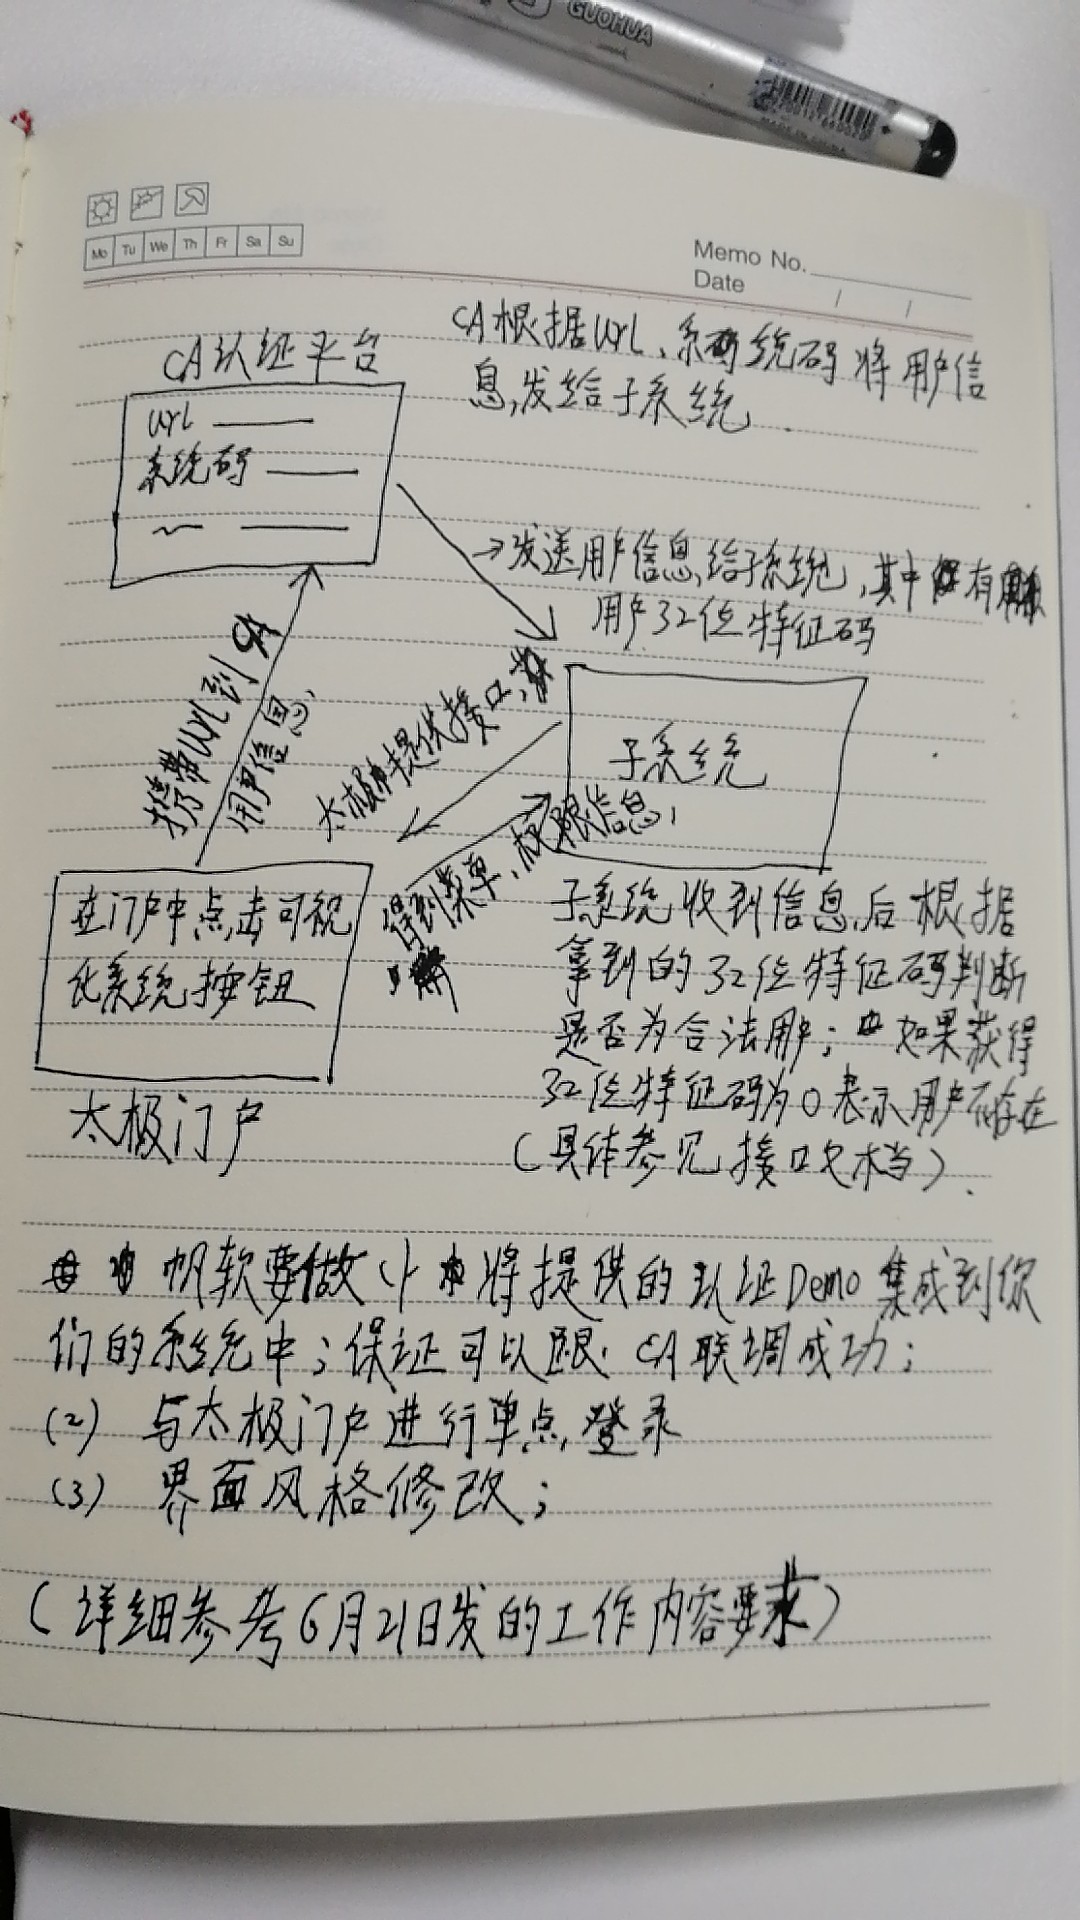 GUOHUA
MADE IN CHINA
Mo Tu We Th Fr Sa Su
Memo No.
Date / /
CA根据url、系统码将用户信
息,发给子系统
CA认证平台
url
系统码
→发送用户信息,给子系统,其中有
用户32位特征码
携带URL到CA
用户信息
太极提供接口,
子系统
得到菜单、权限信息,
在门户中点击可视
化系统按钮
太极门户
子系统收到信息后根据
拿到的32位特征码判断
是否为合法用户;如果获得
32位特征码为0表示用户不存在
(具体参见接口文档).
帆软要做(1)将提供的认证Demo集成到你
们的系统中;保证可以跟CA联调成功;
(2) 与太极门户进行单点登录
(3) 界面风格修改;
(详细参考6月21日发的工作内容要求)